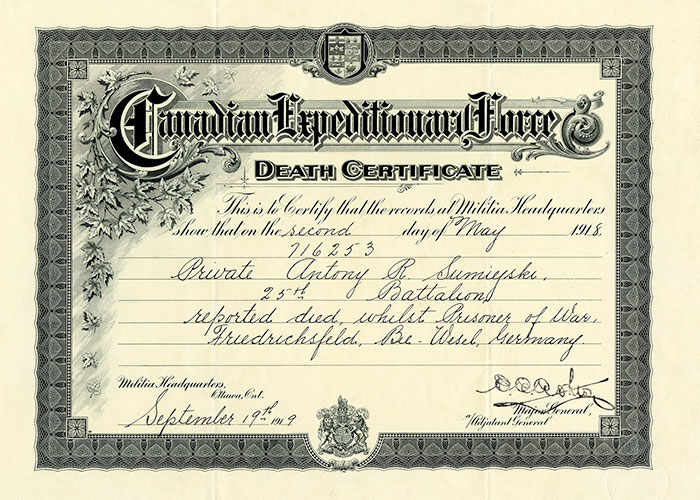 Canadian Expeditionary Force
DEATH CERTIFICATE
This is to Certify that the records at Militia Headquarters
show that on the second day of May 1918.
716253
Private Antony R. Sumieyski,
25th Battalion
reported died, whilst Prisoner of War,
Friedrichsfeld, Bei-Wesel, Germany
Militia Headquarters,
Ottawa, Ont.
September 19th 1919
Major General,
Adjutant General